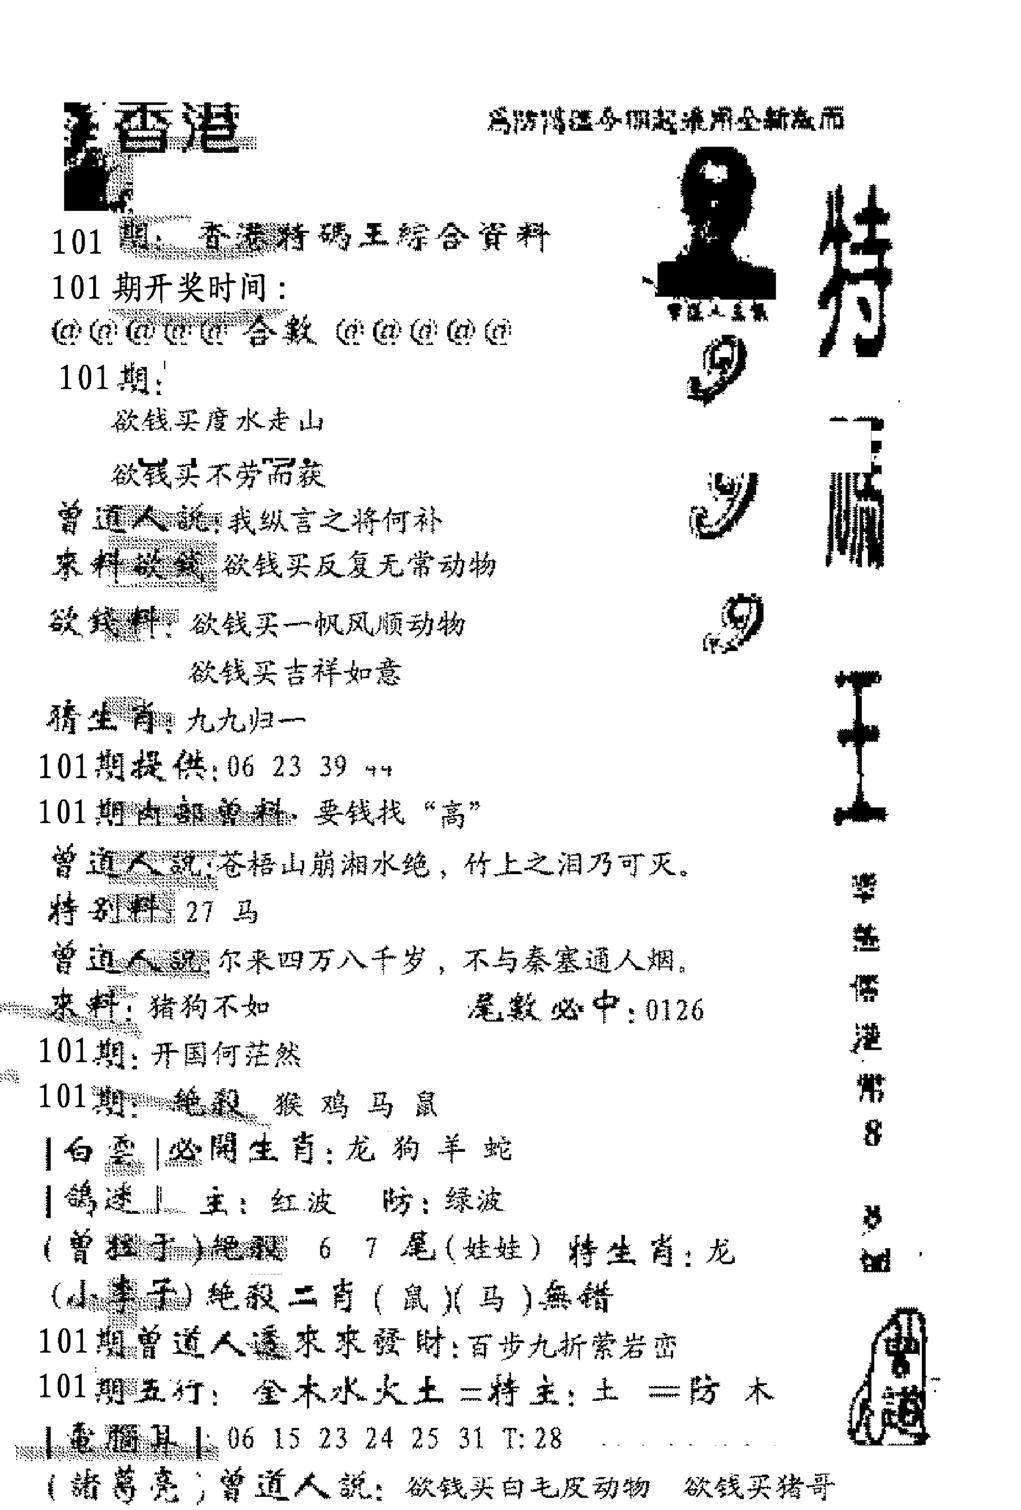 香港
為防 全新版面
101期: 香港特碼王綜合資料
101期开奖时间:
@@@@@合數@@@@@
101期:
欲钱买度水走山
欲钱买不劳而获
曾道人說:我纵言之将何补
來料欲錢 欲钱买反复无常动物
欲錢料: 欲钱买一帆风顺动物
欲钱买吉祥如意
猜生肖: 九九归一
101期提供:06 23 39 44
101期内部曾料: 要钱找“高”
曾道人說:苍梧山崩湘水绝，竹上之泪乃可灭。
特别料: 27 马
曾道人說:尔来四万八千岁，不与秦塞通人烟。
來料: 猪狗不如 尾數必中:0126
101期: 开国何茫然
101期: 絶殺 猴 鸡 马 鼠
|白雲|必開生肖: 龙 狗 羊 蛇
|鴿迷| 主: 红波 防: 绿波
(曾 于)絕殺 6 7 尾(娃娃) 特生肖: 龙
(小李子)絶殺二肖(鼠)(马)無错
101期曾道人透來來發財:百步九折萦岩峦
101期五行: 金木水火土=特主: 土 =防 木
|電腦 |: 06 15 23 24 25 31 T:28
(諸葛亮)曾道人說: 欲钱买白毛皮动物 欲钱买猪哥
特
王
9
9
9
港
8
8